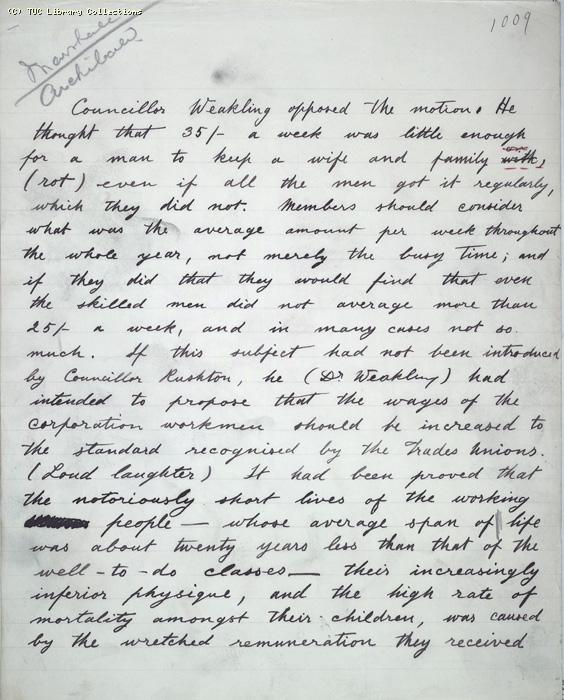 (C) TUC Library Collections
1009
Marshall
Archibald
Councillor Weakling opposed the motion. He
thought that 35/- a week was little enough
for a man to keep a wife and family with,
(rot) even if all the men got it regularly,
which they did not. Members should consider
what was the average amount per week throughout
the whole year, not merely the busy time; and
if they did that they would find that even
the skilled men did not average more than
25/- a week, and in many cases not so
much. If this subject had not been introduced
by Councillor Rushton, he (Dr. Weakling) had
intended to propose that the wages of the
corporation workmen should be increased to
the standard recognised by the Trades Unions.
(Loud laughter) It had been proved that
the notoriously short lives of the working
people — whose average span of life
was about twenty years less than that of the
well-to-do classes — their increasingly
inferior physique, and the high rate of
mortality amongst their children, was caused
by the wretched remuneration they received